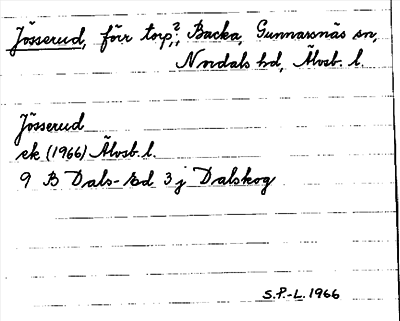 Jösserud, förr torp,? Backa, Gunnarsnäs sn,
Nordals hd, Älvsb. l.
Jösserud
ek (1966) Älvsb. l.
9 B Dals-Ed 3 j Dalskog
S.P.-L. 1966